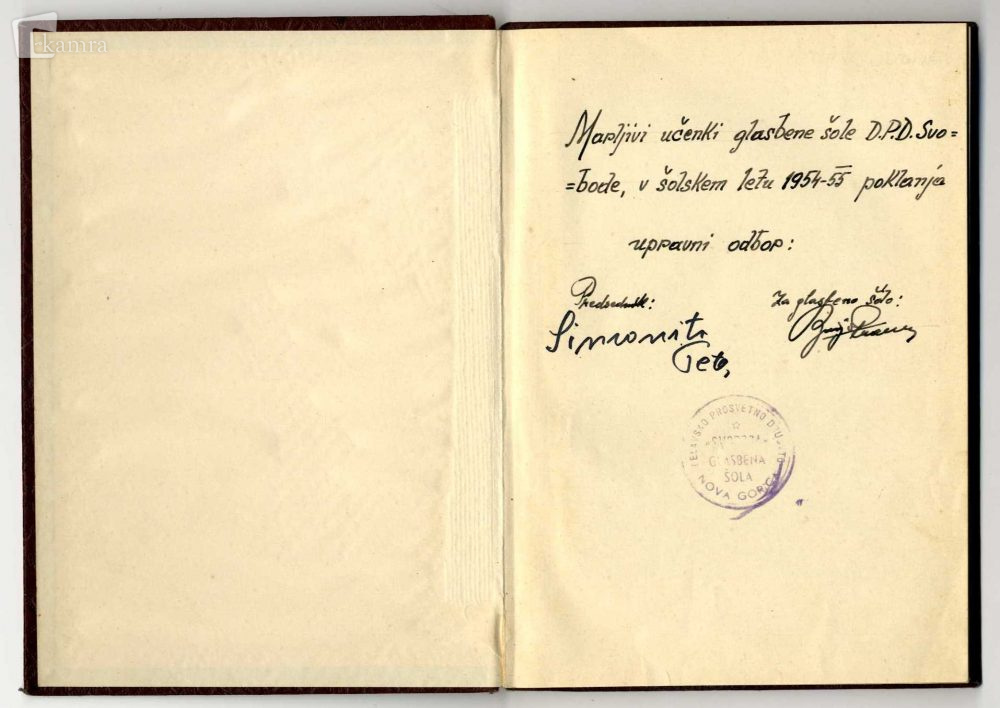 kamra
Marljivi učenki glasbene šole D.P.D. Svo=
=bode, v šolskem letu 1954-55 poklanja
upravni odbor:
Predsednik: Za glasbeno šolo:
Simoniti
DELAVSKO PROSVETNO DRUŠTVO
"SVOBODA"
GLASBENA
ŠOLA
NOVA GORICA